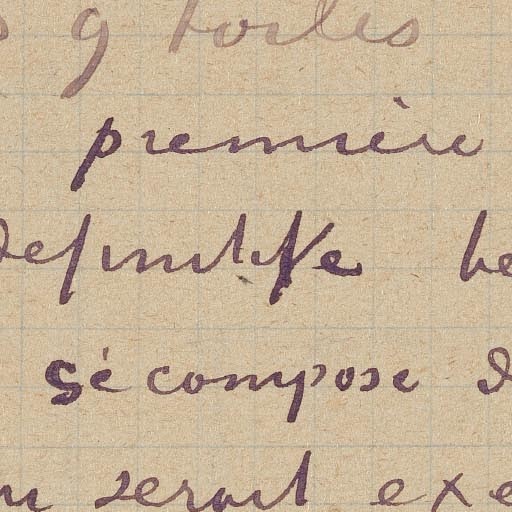 9 toiles
première
définitive
se compose d
seront exe